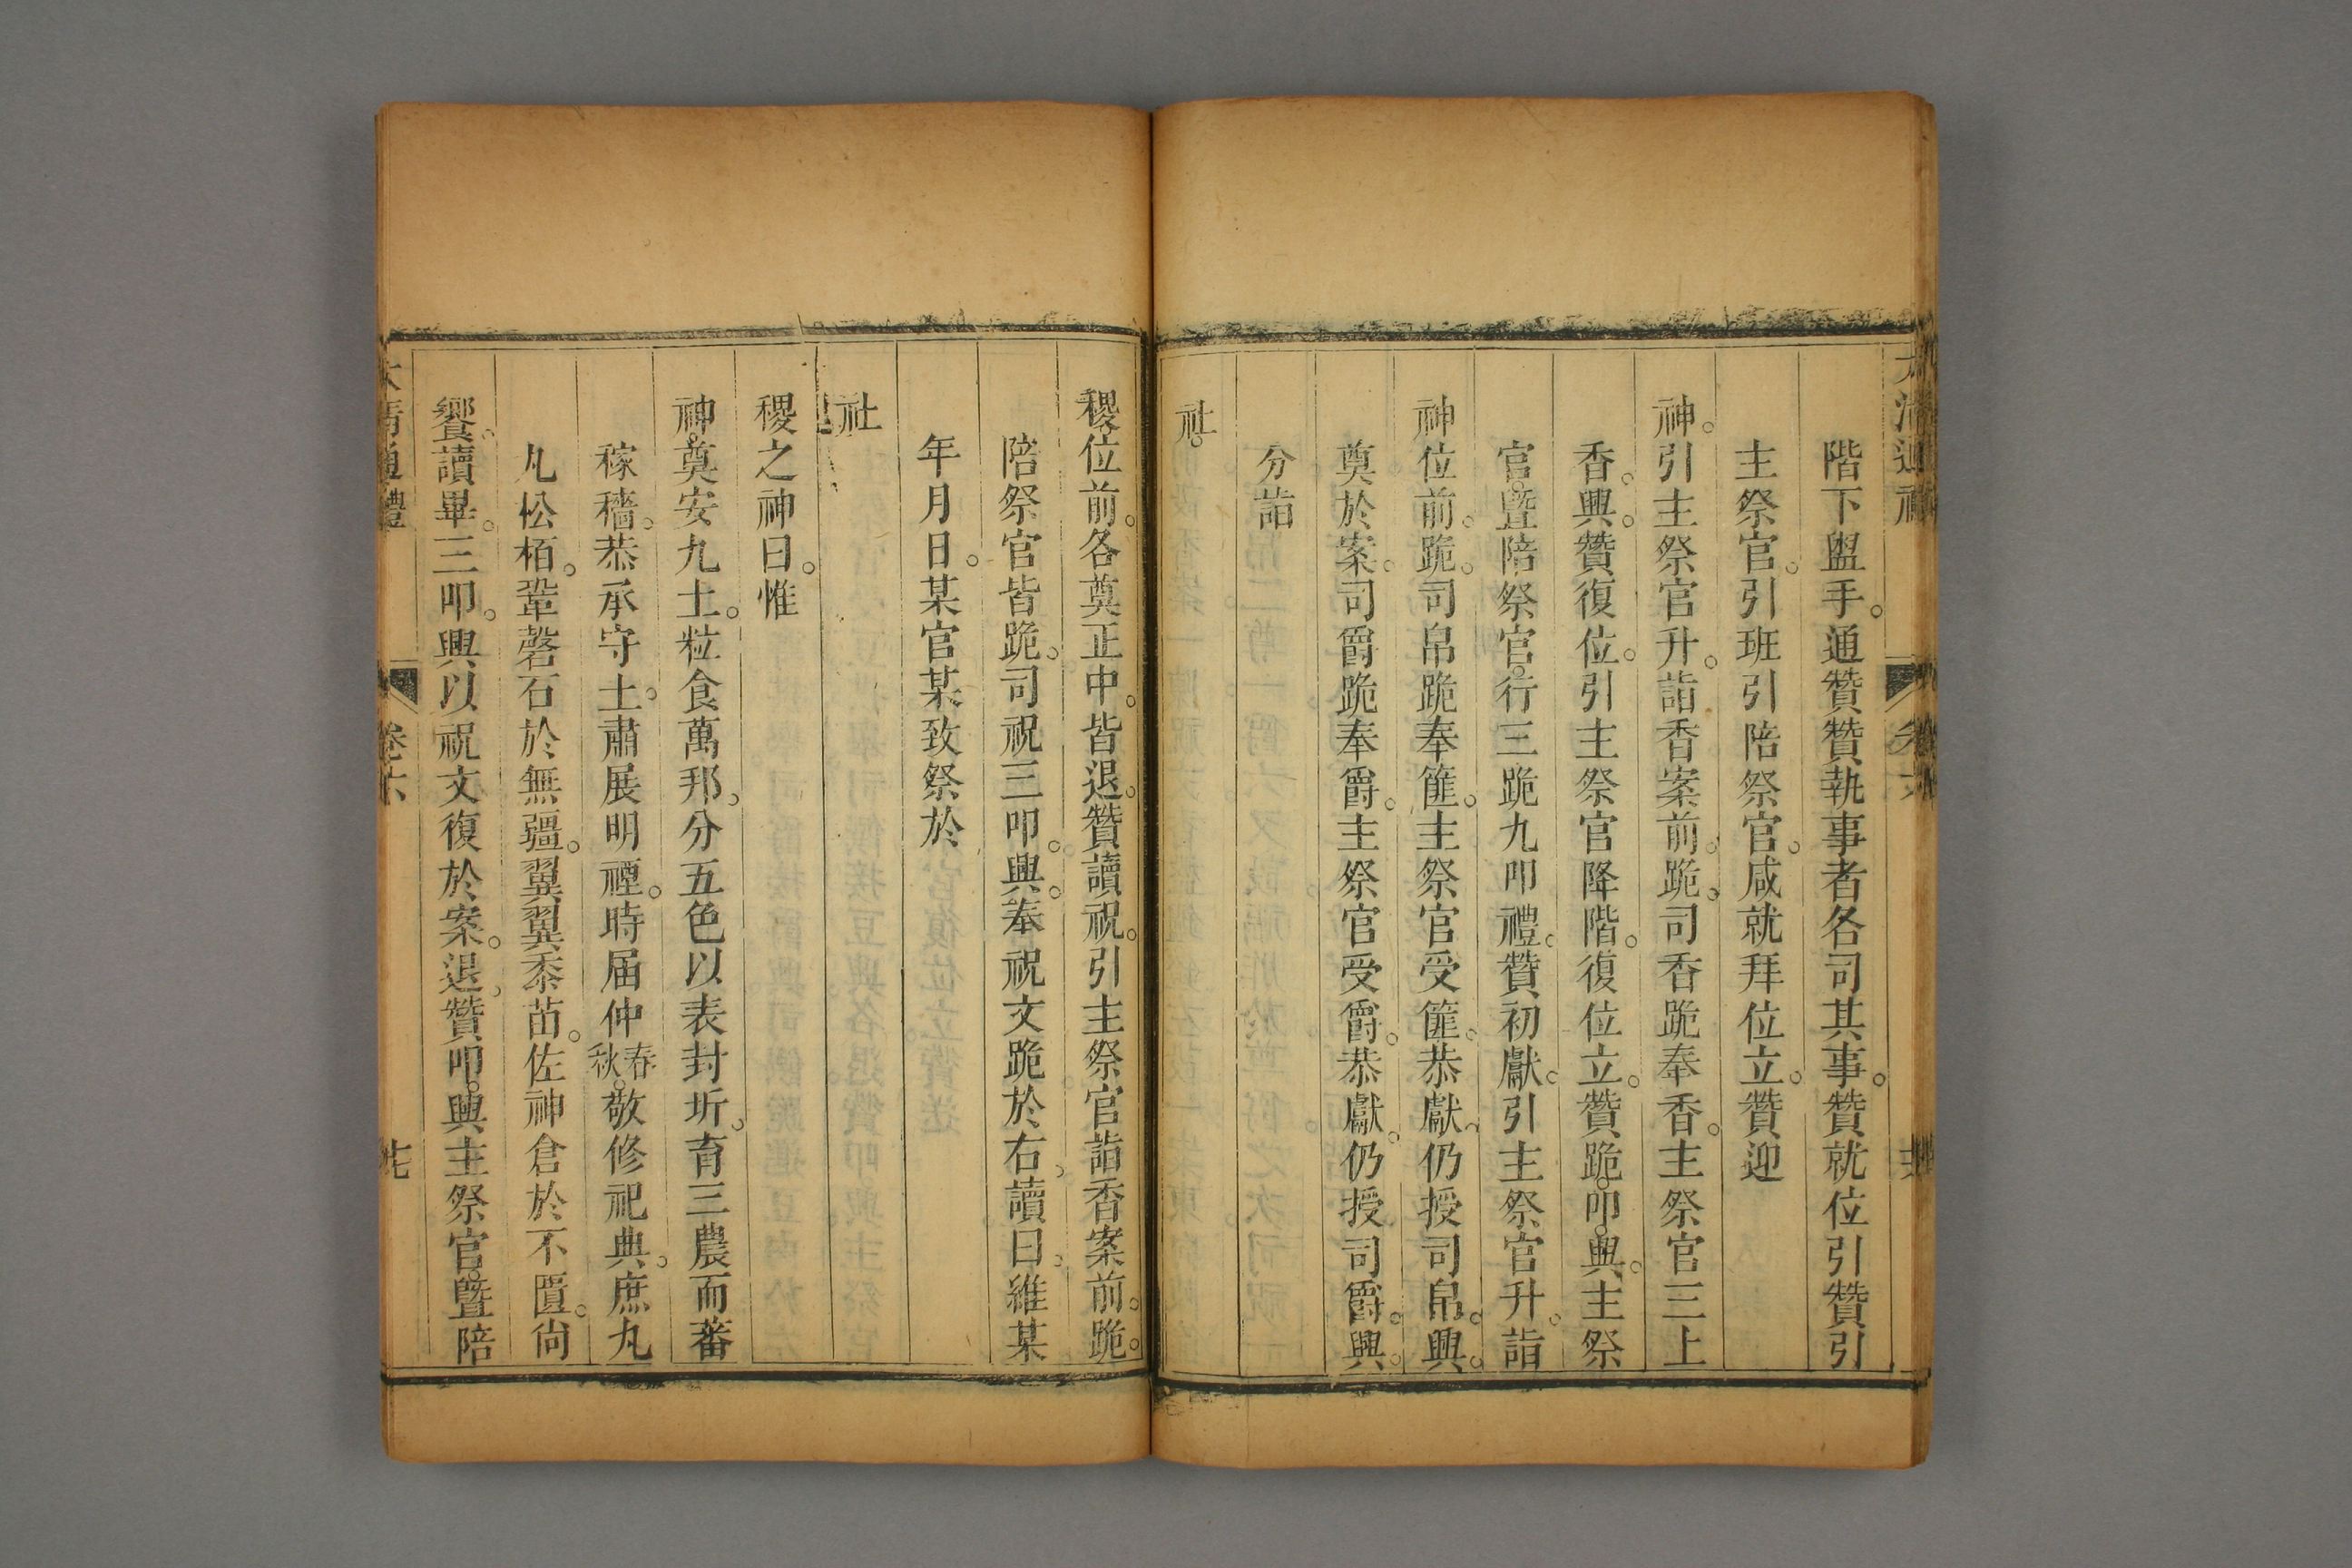 階下盥手。通贊贊執事者各司其事。贊就位引贊引
主祭官。引班引陪祭官。咸就拜位立。贊迎
神。引主祭官升。詣香案前。跪。司香跪奉香。主祭官三上
香。興。贊復位。引主祭官降階。復位立。贊跪。叩。興。主祭
官。暨陪祭官。行三跪九叩禮。贊初獻。引主祭官升。詣
神位前。跪。司帛跪奉篚。主祭官受篚。恭獻。仍授司帛。興。
奠於案。司爵跪奉爵。主祭官受爵。恭獻。仍授司爵。興。
分詣
社。
稷位前。各奠正中。皆退。贊讀祝。引主祭官詣香案前。跪。
陪祭官皆跪。司祝三叩。興。奉祝文跪於右。讀曰。維某
年月日。某官某。致祭於
社
稷之神曰。惟
神。奠安九土。粒食萬邦。分五色以表封圻。育三農而蕃
稼穡。恭承守土。肅展明禋。時届仲春秋。敬修祀典。庶丸
丸松栢。鞏磬石於無疆。翼翼黍苗。佐神倉於不匱。尙
饗。讀畢。三叩。興以祝文復於案。退。贊叩。興。主祭官。暨陪
大清通禮 卷十六